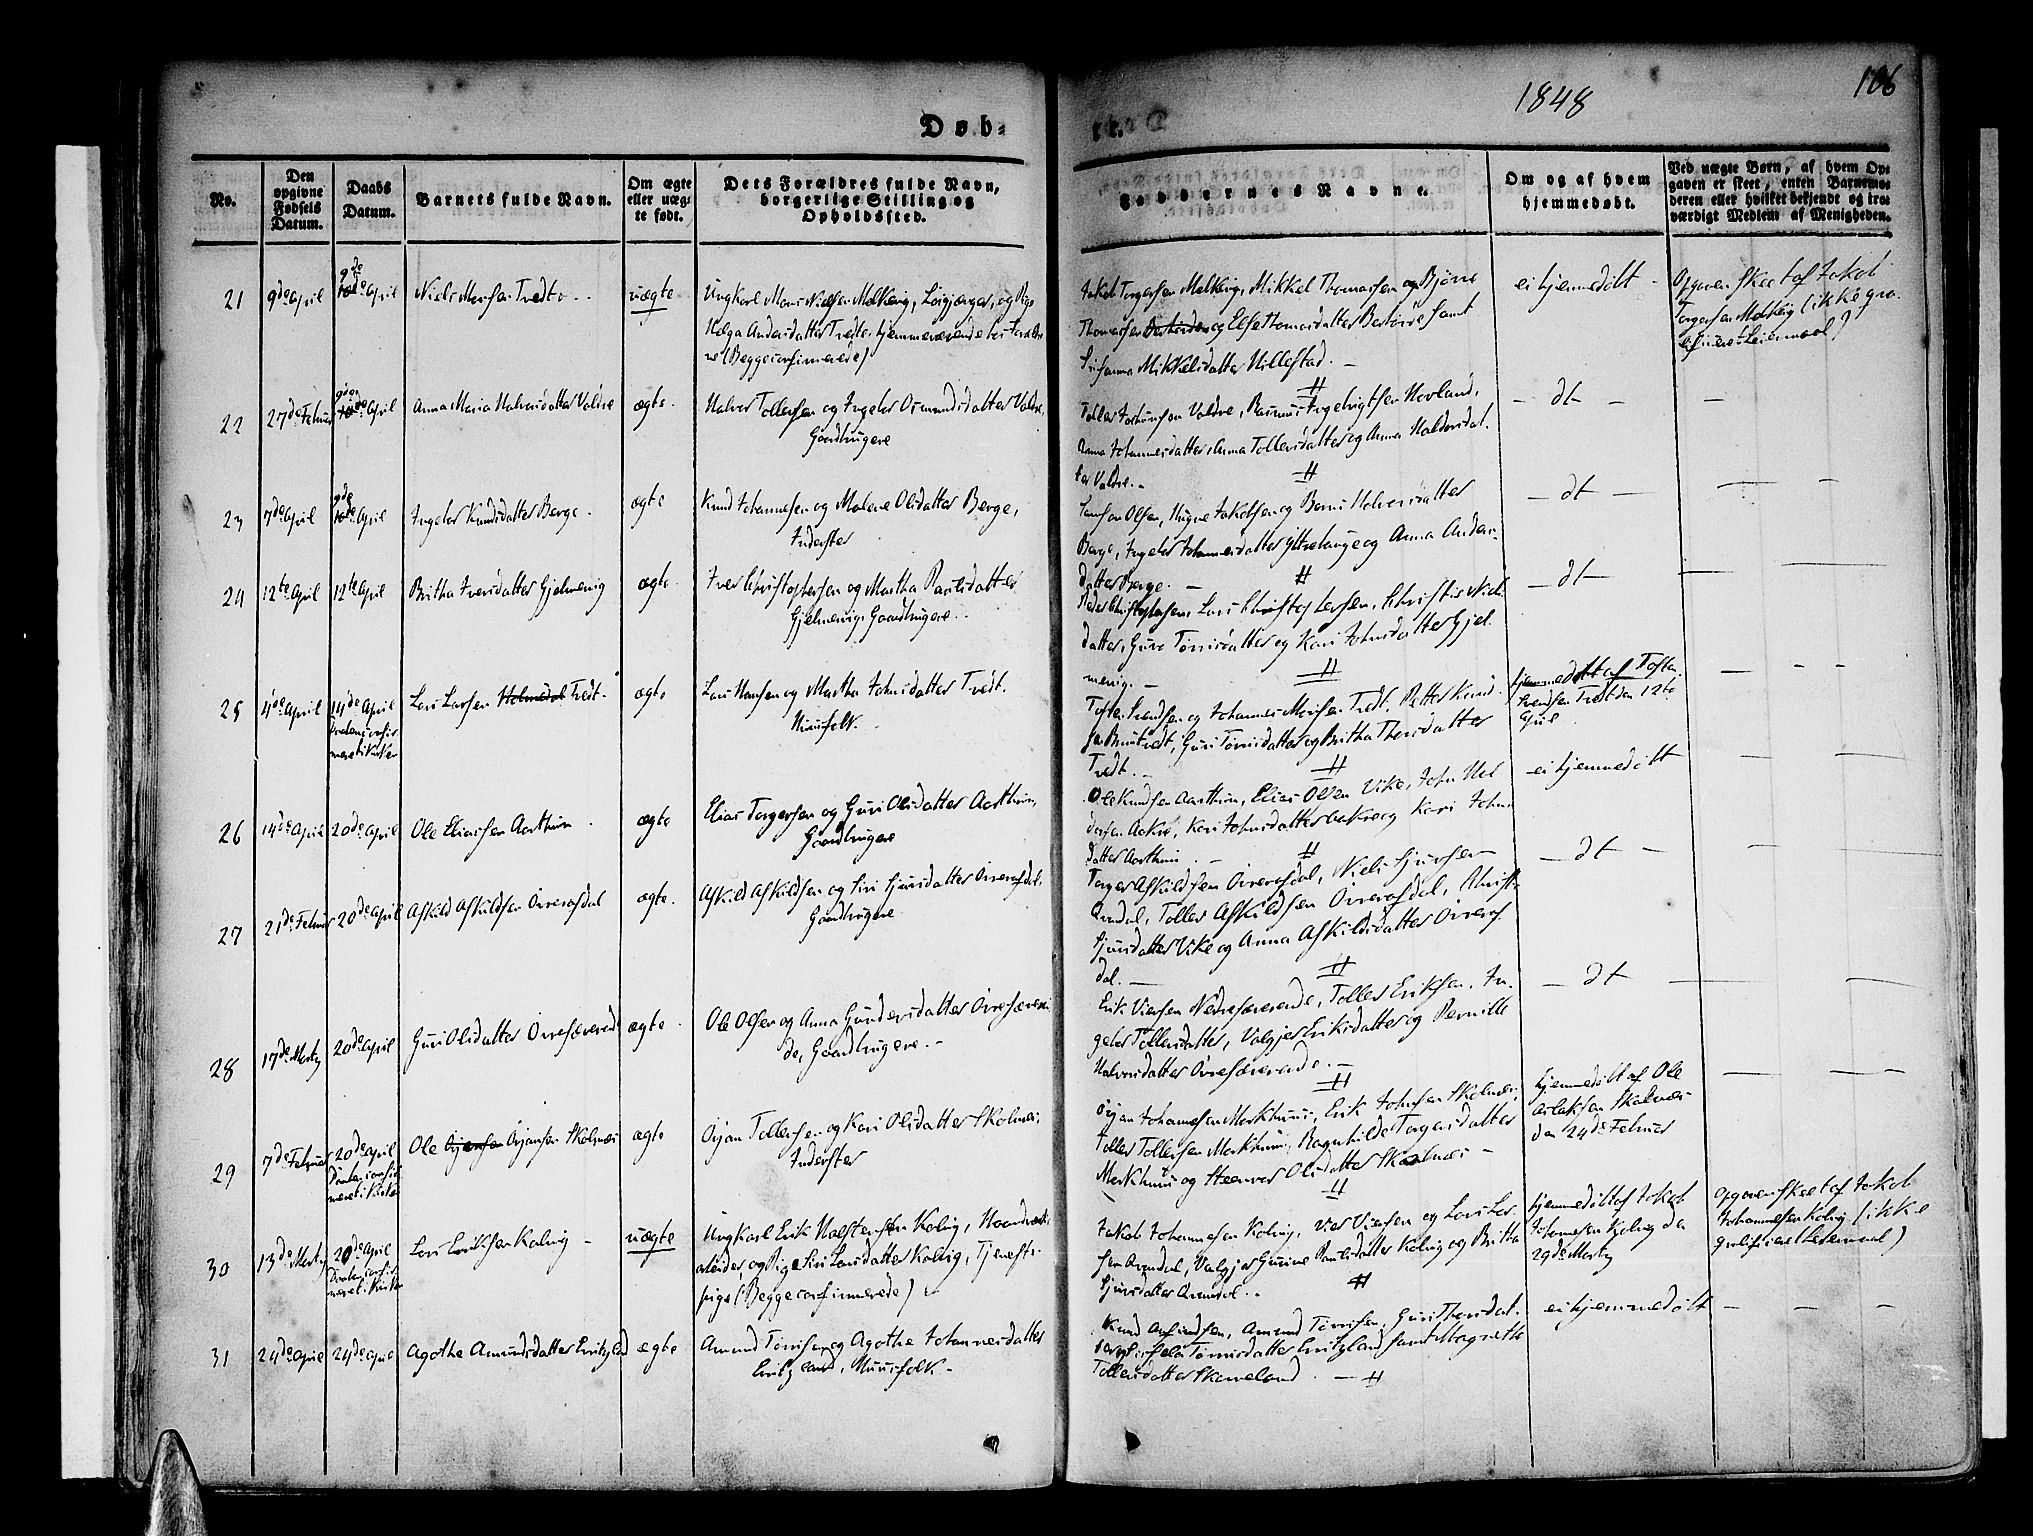 1848
106
Døb-
te.
No.
Den opgivne Fødsels Datum.
Daabs Datum.
Barnets fulde Navn.
Om ægte eller uægte født.
Dets Forældres fulde Navn, borgerlige Stilling og Opholdssted.
Faddernes Navne.
Om og af hvem hjemmedøbt.
Ved uægte Børn, af hvem Opgaven er skeet, enten Barnemoderen eller hvilket bekjendt og troværdigt Medlem af Menigheden.
21
9de April
9de
April
Niels Monsen Tvedt
uægte
Ungkarl Mons Nielsen Molkevig, Løsgjænger, og Pige
Helga Andersdatter Tvedt, hjemmeværende hos Foræld-
re (Begge confirmerede)
Jakob Torgersen Molkevig, Mikkel Thomassen og Bjørne
Thomassen og Else Thomasdatter Børkøvre samt
Mikkelsdatter Hillestad.
ei hjemmedøbt
Opgaven skeet af Jakob
Torgersen Molkevig (ikke qva-
lificeret Leiermaal)
22
27de Februar
April
Anna Maria Halversdatter Valdre
ægte
Halver Tollefsen og Ingebor Osmundsdatter Valdre,
Gaardbrugere
Valdre, Rasmus Ingebrigtsen Hovland,
Anna Johannesdatter, Anna Tollevsdatter og Anna Haldorsdat-
ter Valdre.
dt
23
7de April
9de
April
Ingebor Knudsdatter Berge
ægte
Knud Johannesen og Malene Olsdatter Berge,
Inderster
Samson Olsen, Jakobsen og Halversdatter
Berge, Ingebor Johannesdatter og Anna Anders-
datter Berge.
dt
24
12te April
12te April
Britha Iversdatter Gjelmervig
ægte
Iver Christophersen og Martha Paulsdatter
Gjelmervig, Gaardbrugere
Peder Christophersen, Lars Christophersen, Christie Niels-
datter, Guro Tørrisdatter og Kari Johnsdatter Gjel-
mervig.
dt
25
4de April
14de April
Daaben confir-
meret i Kirken
Lars Larsen Holmedal Tvedt
ægte
Lars Hansen og Martha Johnsdatter Tvedt.
Huusfolk
Tosten Svendsen og Johannes Monsen Tvedt, Petter Knud-
sen Bruntvedt, Guri Tørrisdatter og Britha Thorsdatter
Tvedt.
hjemmedøbt af Tosten
Svendsen Tvedt den 12te
26
14de April
20de April
Ole Eliassen Aarthun
ægte
Elias Torgersen og Guri Olsdatter Aarthun,
Gaardbrugere
Ole Knudsen Aarthun, Elias Olsen Vike, John Hal-
dorsen Aakre, Kari Johnsdatter Aakre og Kari Johns-
datter Aarthun
ei hjemmedøbt
27
21de Februar
20de April
Askild Askildsen Øvreaasdal
ægte
Askild Askildsen og Siri Sjursdatter Øvreaasdal,
Gaardbrugere
Torger Askildsen Øvreaasdal, Niels Sjursen
Arndal, Tollev Askildsen Øvreaasdal,
Sjursdatter Vike og Anna Askildsdatter Øvreaas-
dal.
dt
28
17de Marty
20de April
Guri Olsdatter Øvrefæverende
ægte
Ole Olsen og Anna Gundersdatter Øvrefæveren-
de, Gaardbrugere
Erik Viersen Nedrefæverende, Tollev Eriksen, In-
gebor Tollevsdatter, Valgjer Eriksdatter og Pernille
Halversdatter Øvrefæverende.
dt
29
7de Februar
20de April
Daaben confir-
meret i Kirken
Ole Ørjansen Skolnæs
ægte
Ørjan Tollefsen og Kari Olsdatter Skolnæs,
Inderster
Ørjan Johannesen Markhuus, Erik Johnsen Skolnæs,
Tollev Tollevsen Markhuus, Ragnhilde Torgersdatter
Markhuus og Steenvor Olsdatter Skolnæs
hjemmedøbt af Ole
Aslaksen Skolnæs
den 24de Februar
30
13de Marty
20de April
Daaben confir-
meret i Kirken
Lars Eriksen Kalvig
uægte
Ungkarl Erik Halstensen Kalvig, Haandværk-
arbeider, og Pige Siri Larsdatter Kalvig, Tjeneste-
pige (Begge confirmerede)
Jakob Johannesen Kalvig, Vier Viersen og Lars Lar-
sen Arndal, Valgjer Gurine Paulsdatter Kalvig og Britha
Sjursdatter Arndal.
hjemmedøbt af Jakob
Johannesen Kalvig den
29de Marty
Opgaven skeet af Jakob
Johannesen Kalvig (ikke
qvalificeret Leiermaal)
31
24de April
24de April
Agothe Amundsdatter Evitzland
ægte
Amund Tørrisen og Agothe Johannesdatter
Evitzland, Huusfolk
Knud Arfindsen, Amund Tørrisen, Guri Thorsdat-
ter, Tørrisdatter Evitzland samt Magrethe
Tollevsdatter Skarveland.
ei hjemmedøbt